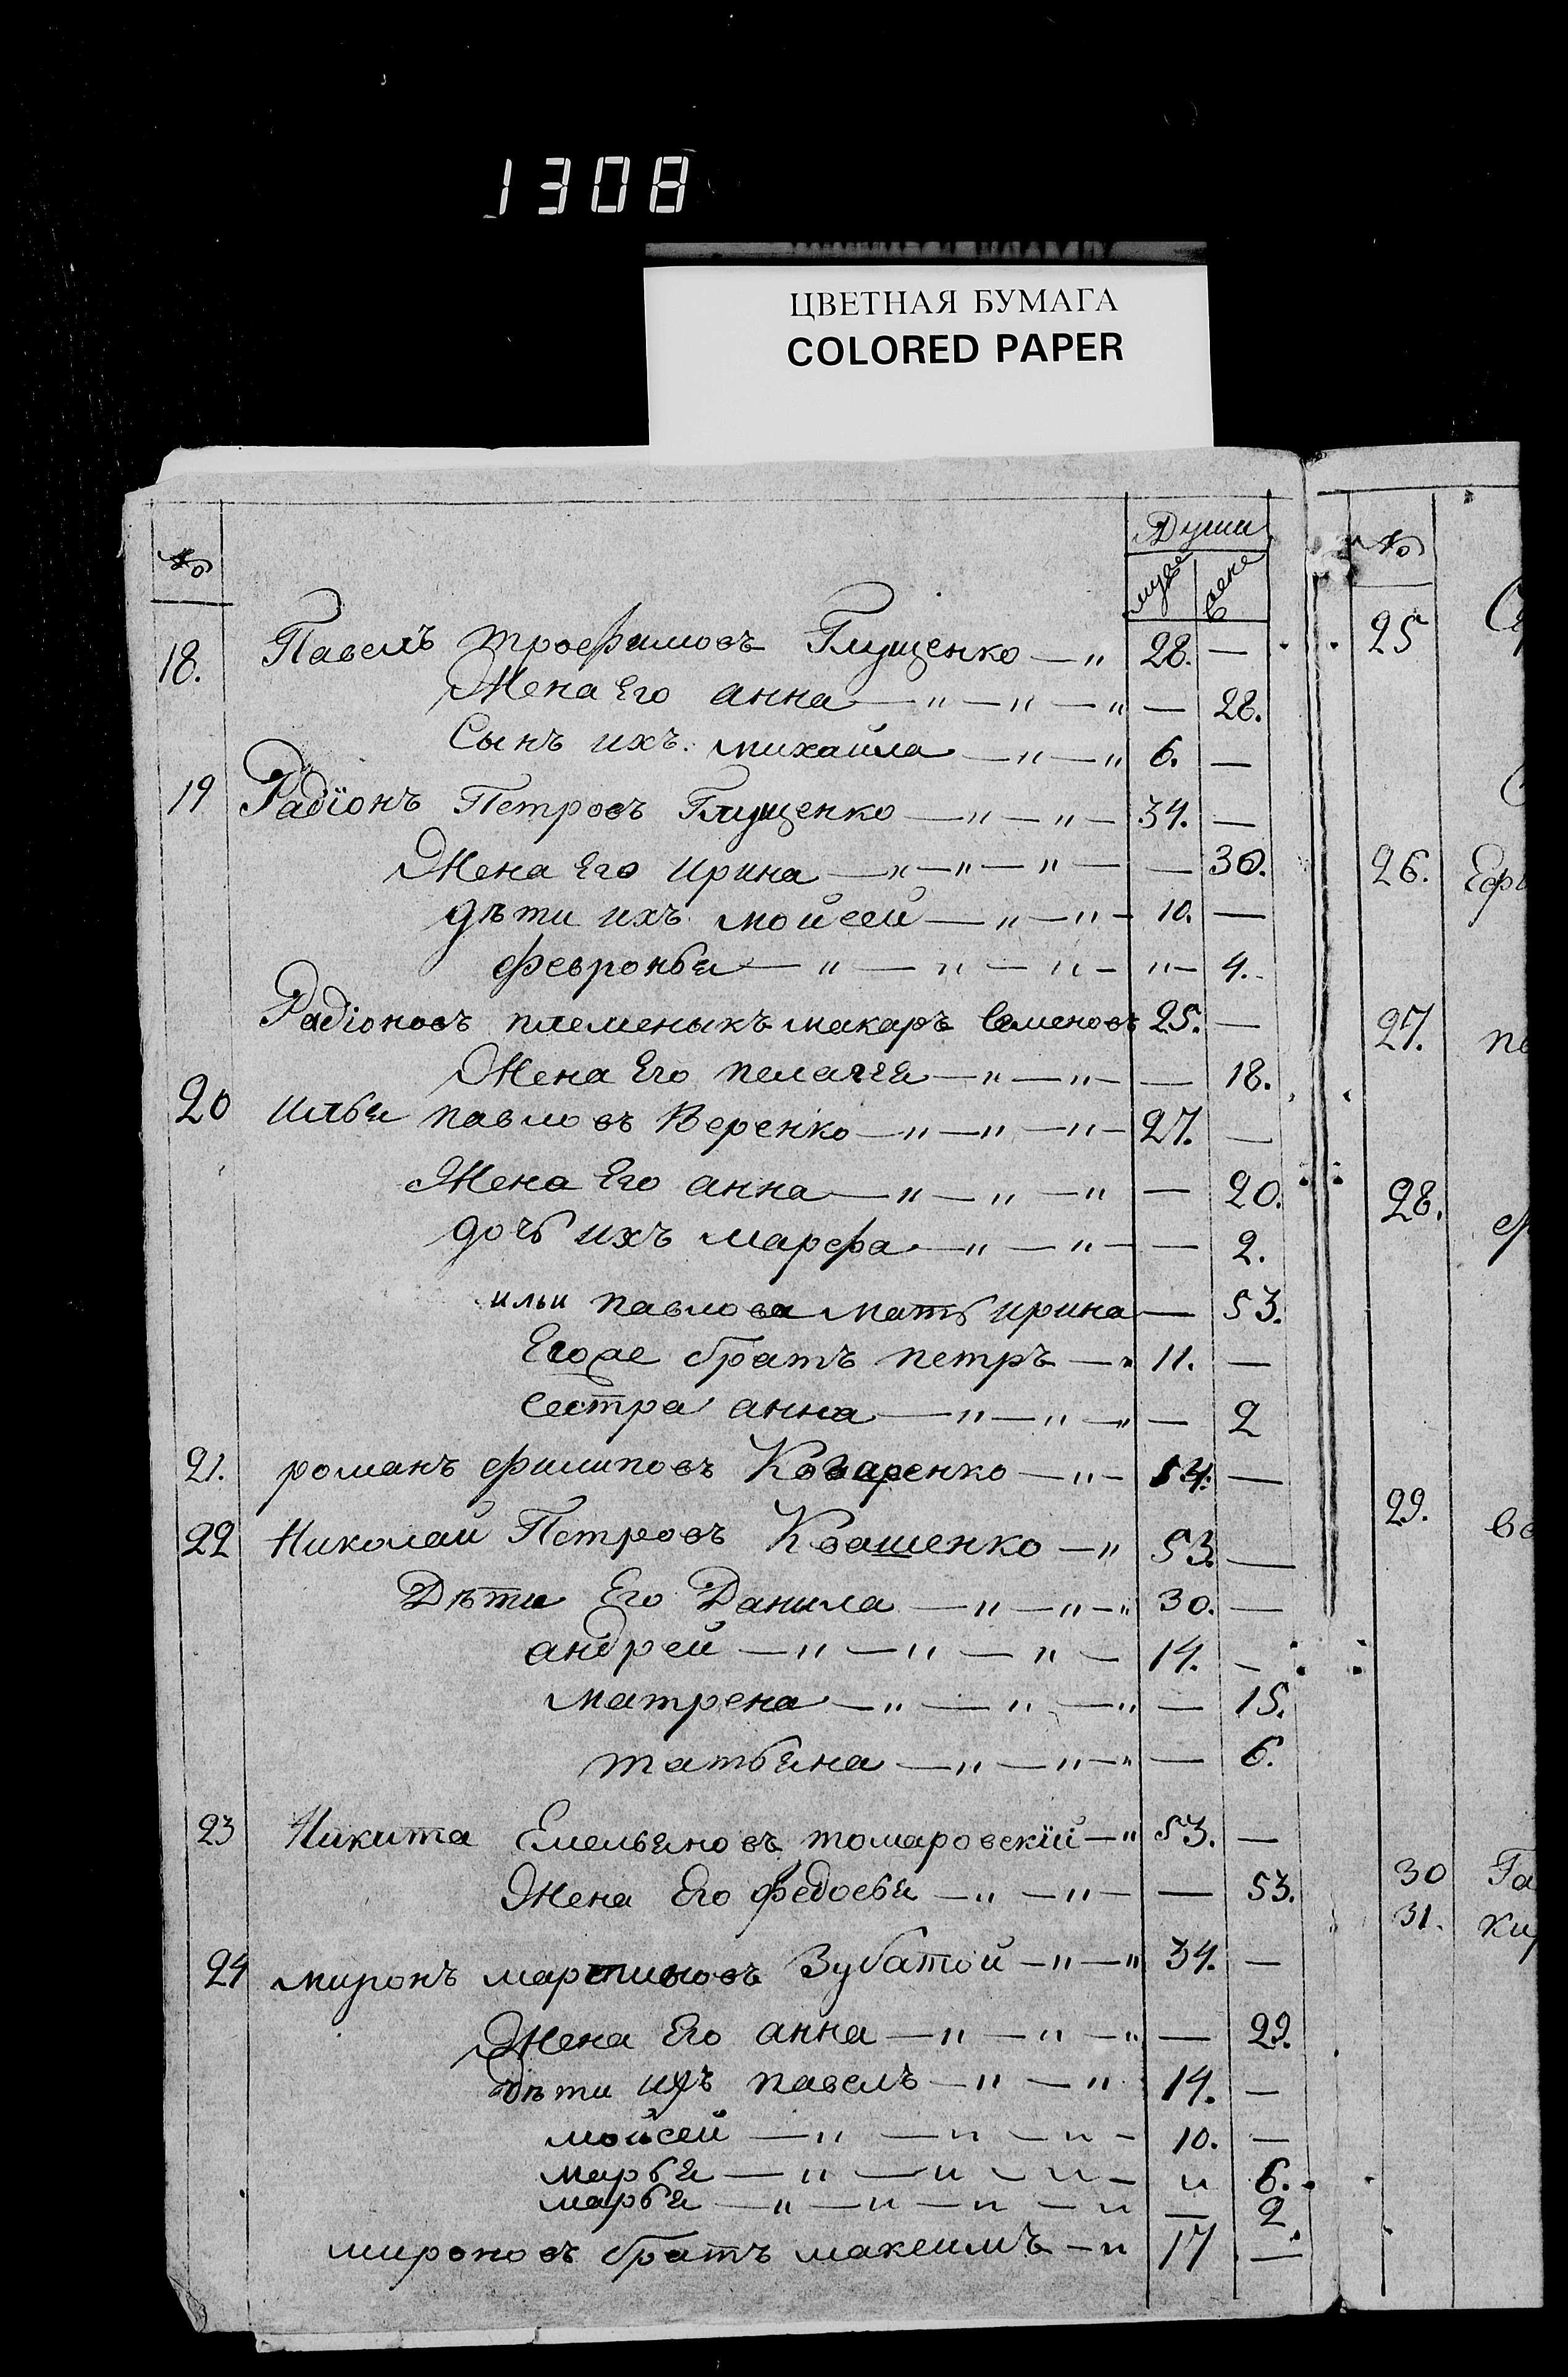 1308
ЦВЕТНАЯ БУМАГА
COLORED PAPER
№ Души
муже жене
18. Павелъ трофимовъ Глущенко — " 28. —
Жена Его анна — " — " — " — 28.
Сынъ ихъ михайла — " — " 6. —
19 Радїонъ Петровъ Глущенко — " — " — 34. —
Жена Его ирина — " — " — " — — 30.
дѣти ихъ мойсей — " — " — 10. —
февронья — " — " — " — " — 4.
Радіоновъ племеныкъ макаръ Семеновъ 25. —
Жена Его пелагея — " — " — — 18.
20 илья павловъ Веренко — " — " — " — 27. —
Жена Его анна — " — " — " — 20.
дочь ихъ марфа — " — " — — 2.
ильи павлова мать ирина — 53.
Егоже братъ петръ — " 11. —
Сестра анна — " — " — " — 2
21. романъ филиповъ — " — 54. —
22 Николай Петровъ Квашенко — " 53. —
Дѣти Его Данила — " — " — " 30. —
андрей — " — " — " — 14. —
матрена — " — " — " — 15.
татьяна — " — " — " — 6.
23 Никита Емельяновъ томаровскїй — " 53. —
Жена Его федосья — " — " — — 53.
24 миронъ мартиновъ Зубатой — " — " 34. —
Жена Его анна — " — " — " — 29.
дѣти ихъ павелъ — " — " 14. —
мойсей — " — " — " — 10. —
марья — " — " — " — " 6.
марья — " — " — " — " — 2.
мироновъ братъ максимъ — " 17 —
№
25
26. Ефи
27.
28.
29.
30 Га
31. ки